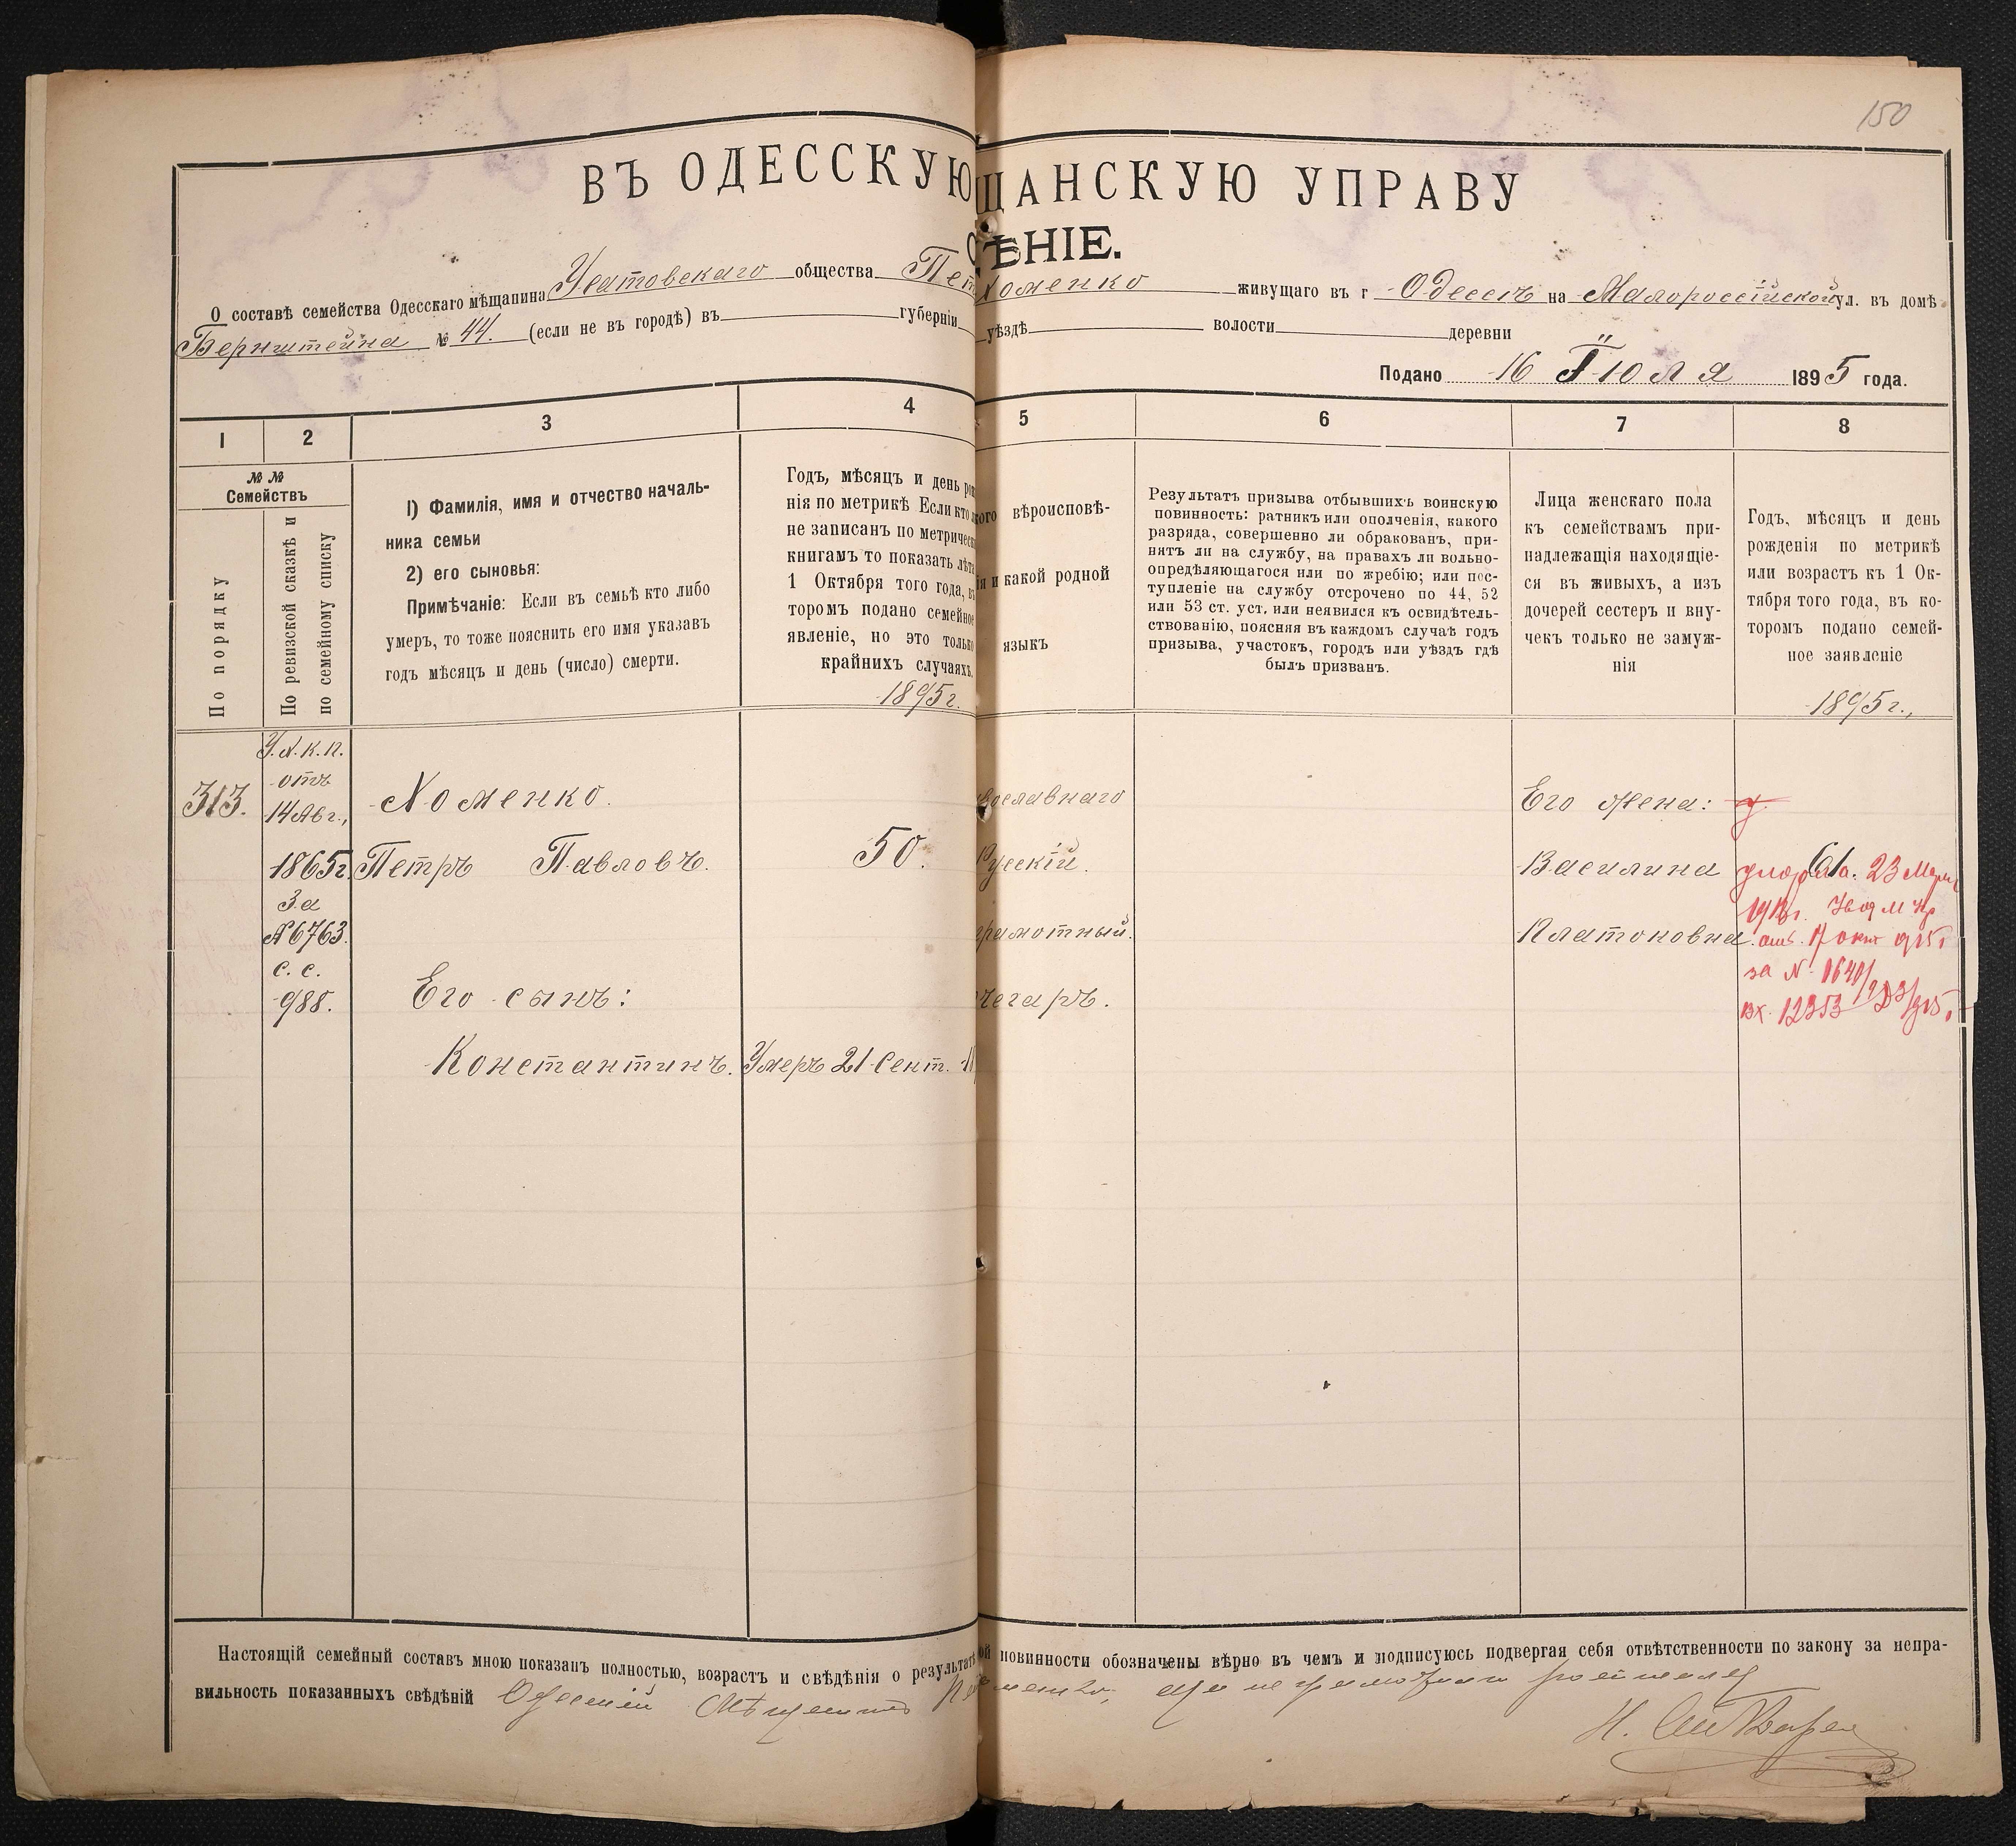 150
ВЪ ОДЕССКУЮ ЩАНСКУЮ УПРАВУ
ѢНІЕ.
О составѣ семейства Одесскаго мѣщанина Усатовскаго общества Пет Хоменко живущаго въ г Одессѣ на Малороссійской ул. въ домѣ
Бернштейна № 44. (если не въ городѣ) въ губерніи уѣздѣ волости деревни
Подано 16 Іюля 1895 года.
1 2 3 4 5 6 7 8
№ №
Семействъ
По порядку
По ревизской сказкѣ и
по семейному списку
1) Фамилія, имя и отчество началь-
ника семьи
2) его сыновья:
Примѣчаніе: Если въ семьѣ кто либо
умеръ, то тоже пояснить его имя указавъ
годъ мѣсяцъ и день (число) смерти.
Годъ, мѣсяцъ и день рож
нія по метрикѣ Если кто
не записанъ по метрическ
книгамъ то показать лѣта
1 Октября того года, въ
торомъ подано семейное
явленіе, но это только
крайнихъ случаяхъ.
1895г.
кого вѣроисповѣ-
ія и какой родной
языкъ
Результатъ призыва отбывшихъ воинскую
повинность: ратникъ или ополченія, какого
разряда, совершенно ли обракованъ, при-
нятъ ли на службу, на правахъ ли вольно-
опредѣляющагося или по жребію; или пос-
тупленіе на службу отсрочено по 44, 52
или 53 ст. уст. или неявился къ освидѣтель-
ствованію, поясняя въ каждомъ случаѣ годъ
призыва, участокъ, городъ или уѣздъ гдѣ
былъ призванъ.
Лица женскаго пола
къ семействамъ при-
надлежащія находящіе-
ся въ живыхъ, а изъ
дочерей сестеръ и вну-
чекъ только не замуж-
нія
Годъ, мѣсяцъ и день
рожденія по метрикѣ
или возрастъ къ 1 Ок-
тября того года, въ ко-
торомъ подано семей-
ное заявленіе
1895г.,
313.
У.К.П.
отъ
14 Авг.,
1865г.
За
№6763.
с. с.
988.
Хоменко.
Петръ Павловъ.
Его сынъ:
Константинъ.
50.
Умеръ 21 Сент. 1
вославнаго
Русскій.
грамотный.
Его жена:
Василина
Платоновна
61
23
отъ 17 окт 915г
за №
вх. 12353
Настоящій семейный составъ мною показанъ полностью, возрастъ и свѣдѣнія о результатѣ ой повинности обозначены вѣрно въ чемъ и подписуюсь подвергая себя отвѣтственности по закону за непра-
вильность показанныхъ свѣдѣній Одесскій Мѣщанинъ